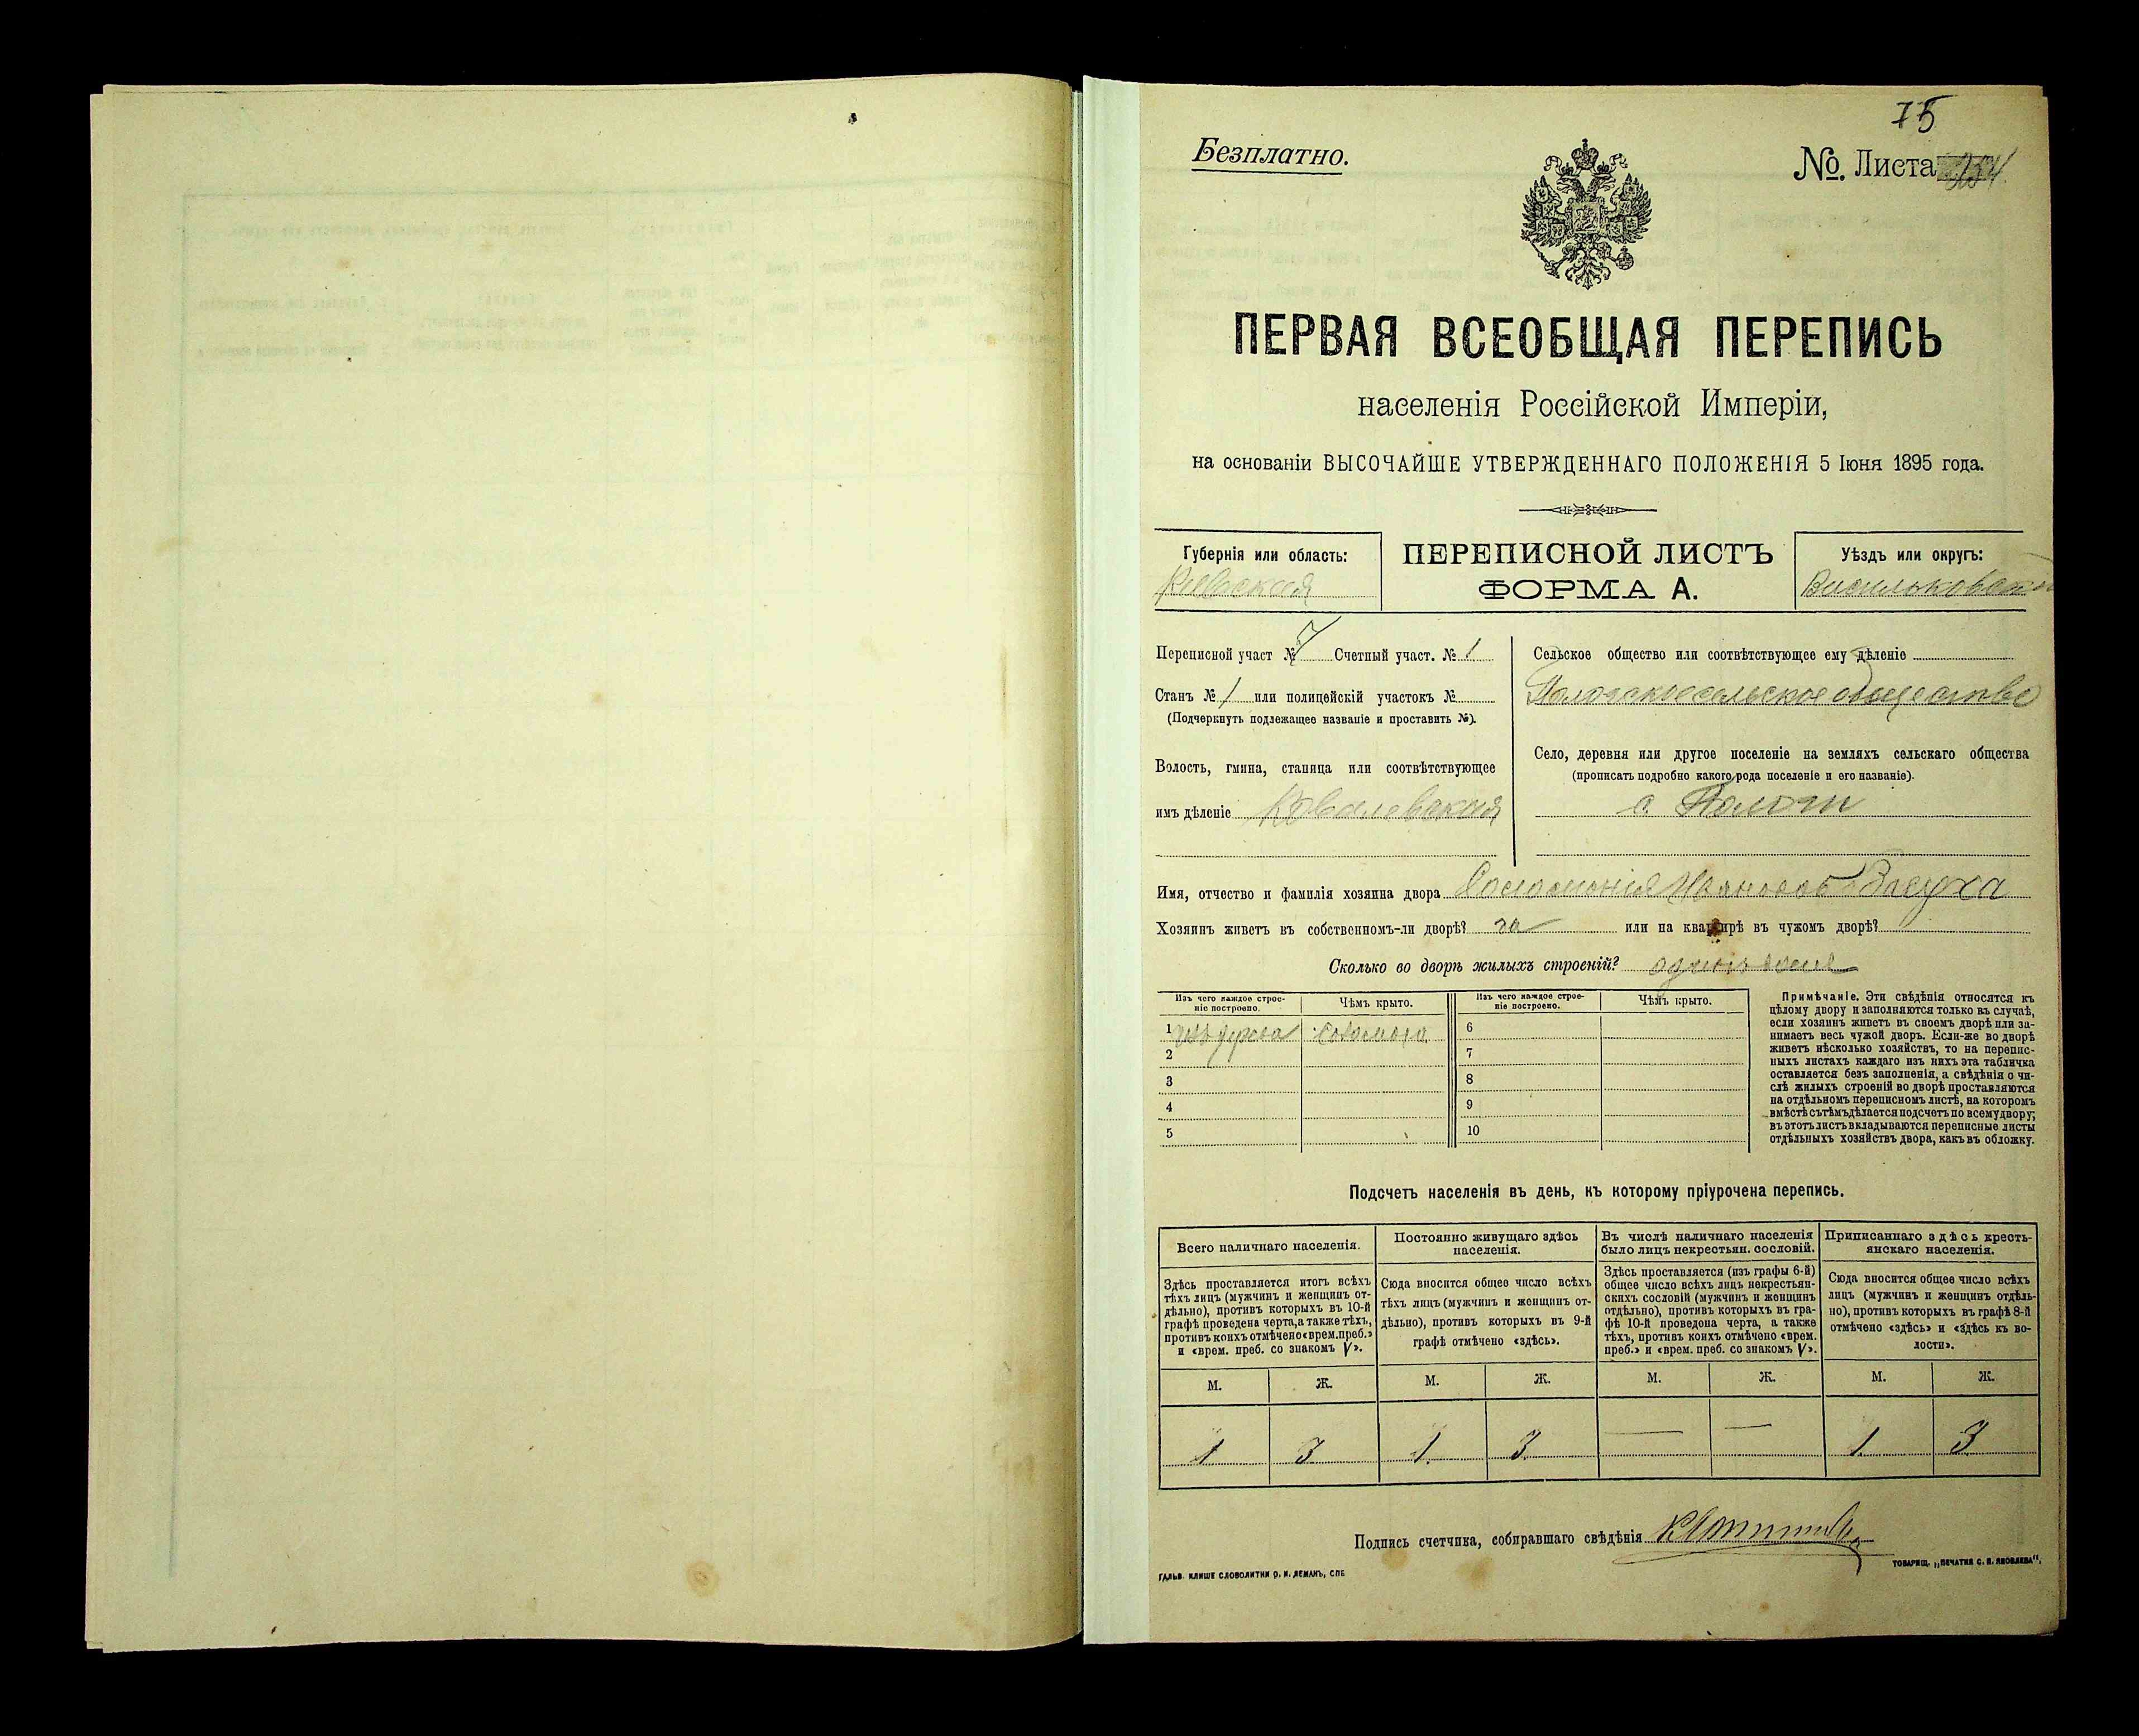 75
Безплатно.
№. Листа 254
ПЕРВАЯ ВСЕОБЩАЯ ПЕРЕПИСЬ
населенія Россійской Имперіи,
на основаніи ВЫСОЧАЙШЕ УТВЕРЖДЕННАГО ПОЛОЖЕНІЯ 5 Іюня 1895 года.
Губернія или область:
Кіевская
ПЕРЕПИСНОЙ ЛИСТЪ
ФОРМА А.
Уѣздъ или округъ:
Васильковскій
Переписной участ № 7 Счетный участ. № 1
Станъ № 1 или полицейскій участокъ №
(Подчеркнуть подлежащее названіе и проставить №).
Волость, гмина, станица или соотвѣтствующее
имъ дѣленіе Ковалевская
Сельское общество или соотвѣтствующее ему дѣленіе
сельское общество
Село, деревня или другое поселеніе на земляхъ сельскаго общества
(прописать подробно какого рода поселеніе и его названіе).
с. Пологи
Имя, отчество и фамилія хозяина двора
Хозяинъ живетъ въ собственномъ-ли дворѣ? да или на квартирѣ въ чужомъ дворѣ?
Сколько во дворѣ жилыхъ строеній? одинъ
Изъ чего каждое строеніе построено.
Чѣмъ крыто.
Изъ чего каждое строеніе построено.
Чѣмъ крыто.
1 изъ дерева соломою
2
3
4
5
6
7
8
9
10
Примѣчаніе. Эти свѣдѣнія относятся къ
цѣлому двору и заполняются только въ случаѣ,
если хозяинъ живетъ въ своемъ дворѣ или за-
нимаетъ весь чужой дворъ. Если-же во дворѣ
живетъ нѣсколько хозяйствъ, то на перепис-
ныхъ листахъ каждаго изъ нихъ эта табличка
оставляется безъ заполненія, а свѣдѣнія о чи-
слѣ жилыхъ строеній во дворѣ проставляются
на отдѣльномъ переписномъ листѣ, на которомъ
вмѣстѣ съ тѣмъ дѣлается подсчетъ по всему двору;
въ этотъ листъ вкладываются переписные листы
отдѣльныхъ хозяйствъ двора, какъ въ обложку.
Подсчетъ населенія въ день, къ которому пріурочена перепись.
Всего наличнаго населенія.
Здѣсь проставляется итогъ всѣхъ
тѣхъ лицъ (мужчинъ и женщинъ от-
дѣльно), противъ которыхъ въ 10-й
графѣ проведена черта, а также тѣхъ,
противъ коихъ отмѣчено «врем. преб.»
и «врем. преб. со знакомъ V».
Постоянно живущаго здѣсь
населенія.
Сюда вносится общее число всѣхъ
тѣхъ лицъ (мужчинъ и женщинъ от-
дѣльно), противъ которыхъ въ 9-й
графѣ отмѣчено «здѣсь».
Въ числѣ наличнаго населенія
было лицъ некрестьян. сословій.
Здѣсь проставляется (изъ графы 6-й)
общее число всѣхъ лицъ некрестьян-
скихъ сословій (мужчинъ и женщинъ
отдѣльно), противъ которыхъ въ гра-
фѣ 10-й проведена черта, а также
тѣхъ, противъ коихъ отмѣчено «врем.
преб.» и «врем. преб. со знакомъ V».
Приписаннаго здѣсь кресть-
янскаго населенія.
Сюда вносится общее число всѣхъ
лицъ (мужчинъ и женщинъ отдѣль-
но), противъ которыхъ въ графѣ 8-й
отмѣчено «здѣсь» и «здѣсь къ во-
лости».
М. Ж. М. Ж. М. Ж. М. Ж.
1 3 1 3 — — 1 3
Подпись счетчика, собиравшаго свѣдѣнія
ГАЛЬВ. КЛИШЕ СЛОВОЛИТНИ О. И. ЛЕМАНЪ, СПБ
ТОВАРИЩ. „ПЕЧАТНЯ С. П. ЯКОВЛЕВА“.